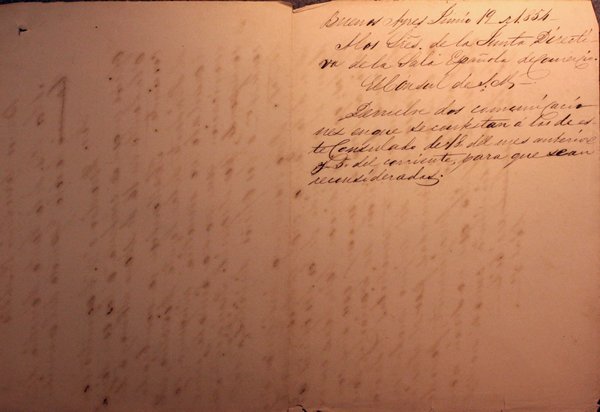 Buenos Ayres Junio 12 de 1854
A los Sres. de la Junta Directi
va de la Sala Española de Comercio.
El Consul de S. M.
Devuelve dos comunicacio
nes en que se contestan a las de es
te Consulado de 18 del mes anterior
y 5 del corriente, para que sean
reconsideradas.